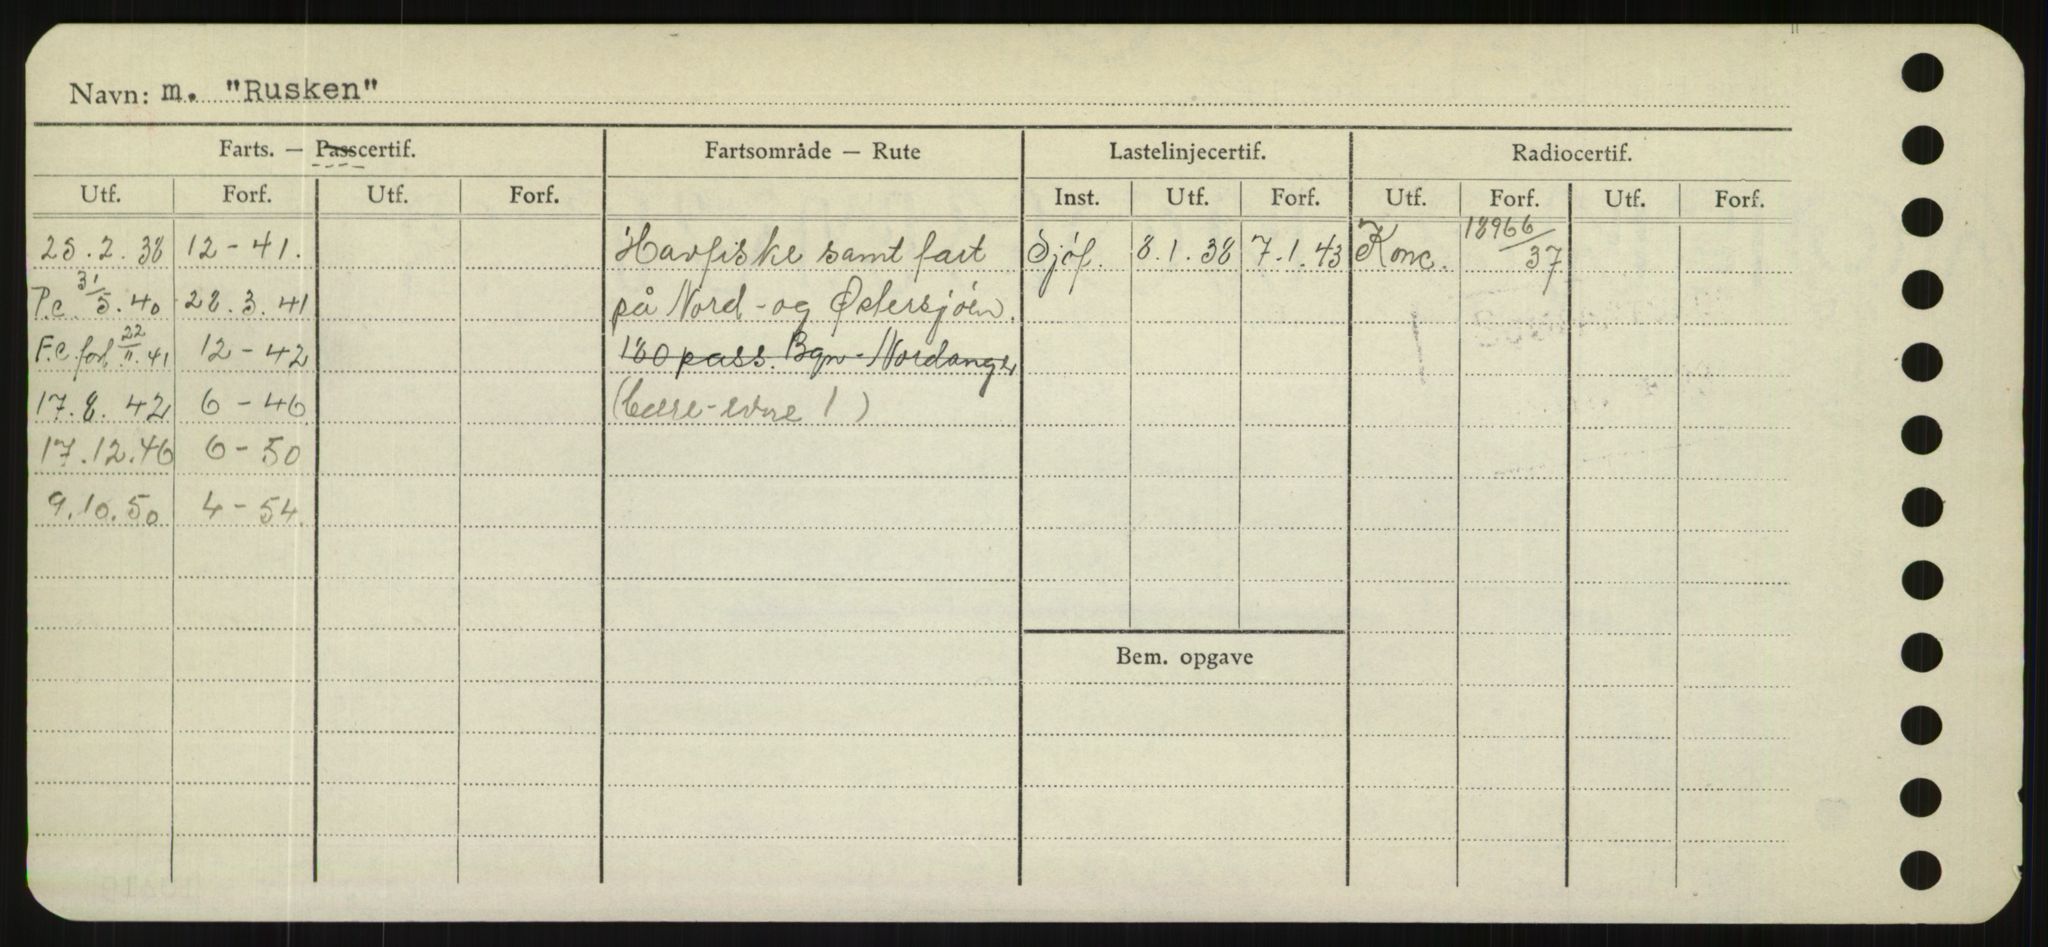 Navn: m. "Rusken"
Farts. — Passcertif. Fartsområde — Rute Lastelinjecertif. Radiocertif.
Utf. Forf. Utf. Forf. Inst. Utf. Forf. Utf. Forf. Utf. Forf.
25.2.38 12-41. Havfiske samt fart Sjóf. 8.1.38 7.1.43 Konc. 18966/37
P.c. 31/5.40 28.3.41 på Nord- og Østersjóen.
F.C. forl. 22/11.41 12-42 180 pass. Bgn-Nordanger
17.8.42 6-46 (bære-evne ! )
17.12.46 6-50
9.10.50 4-54.
Bem. opgave